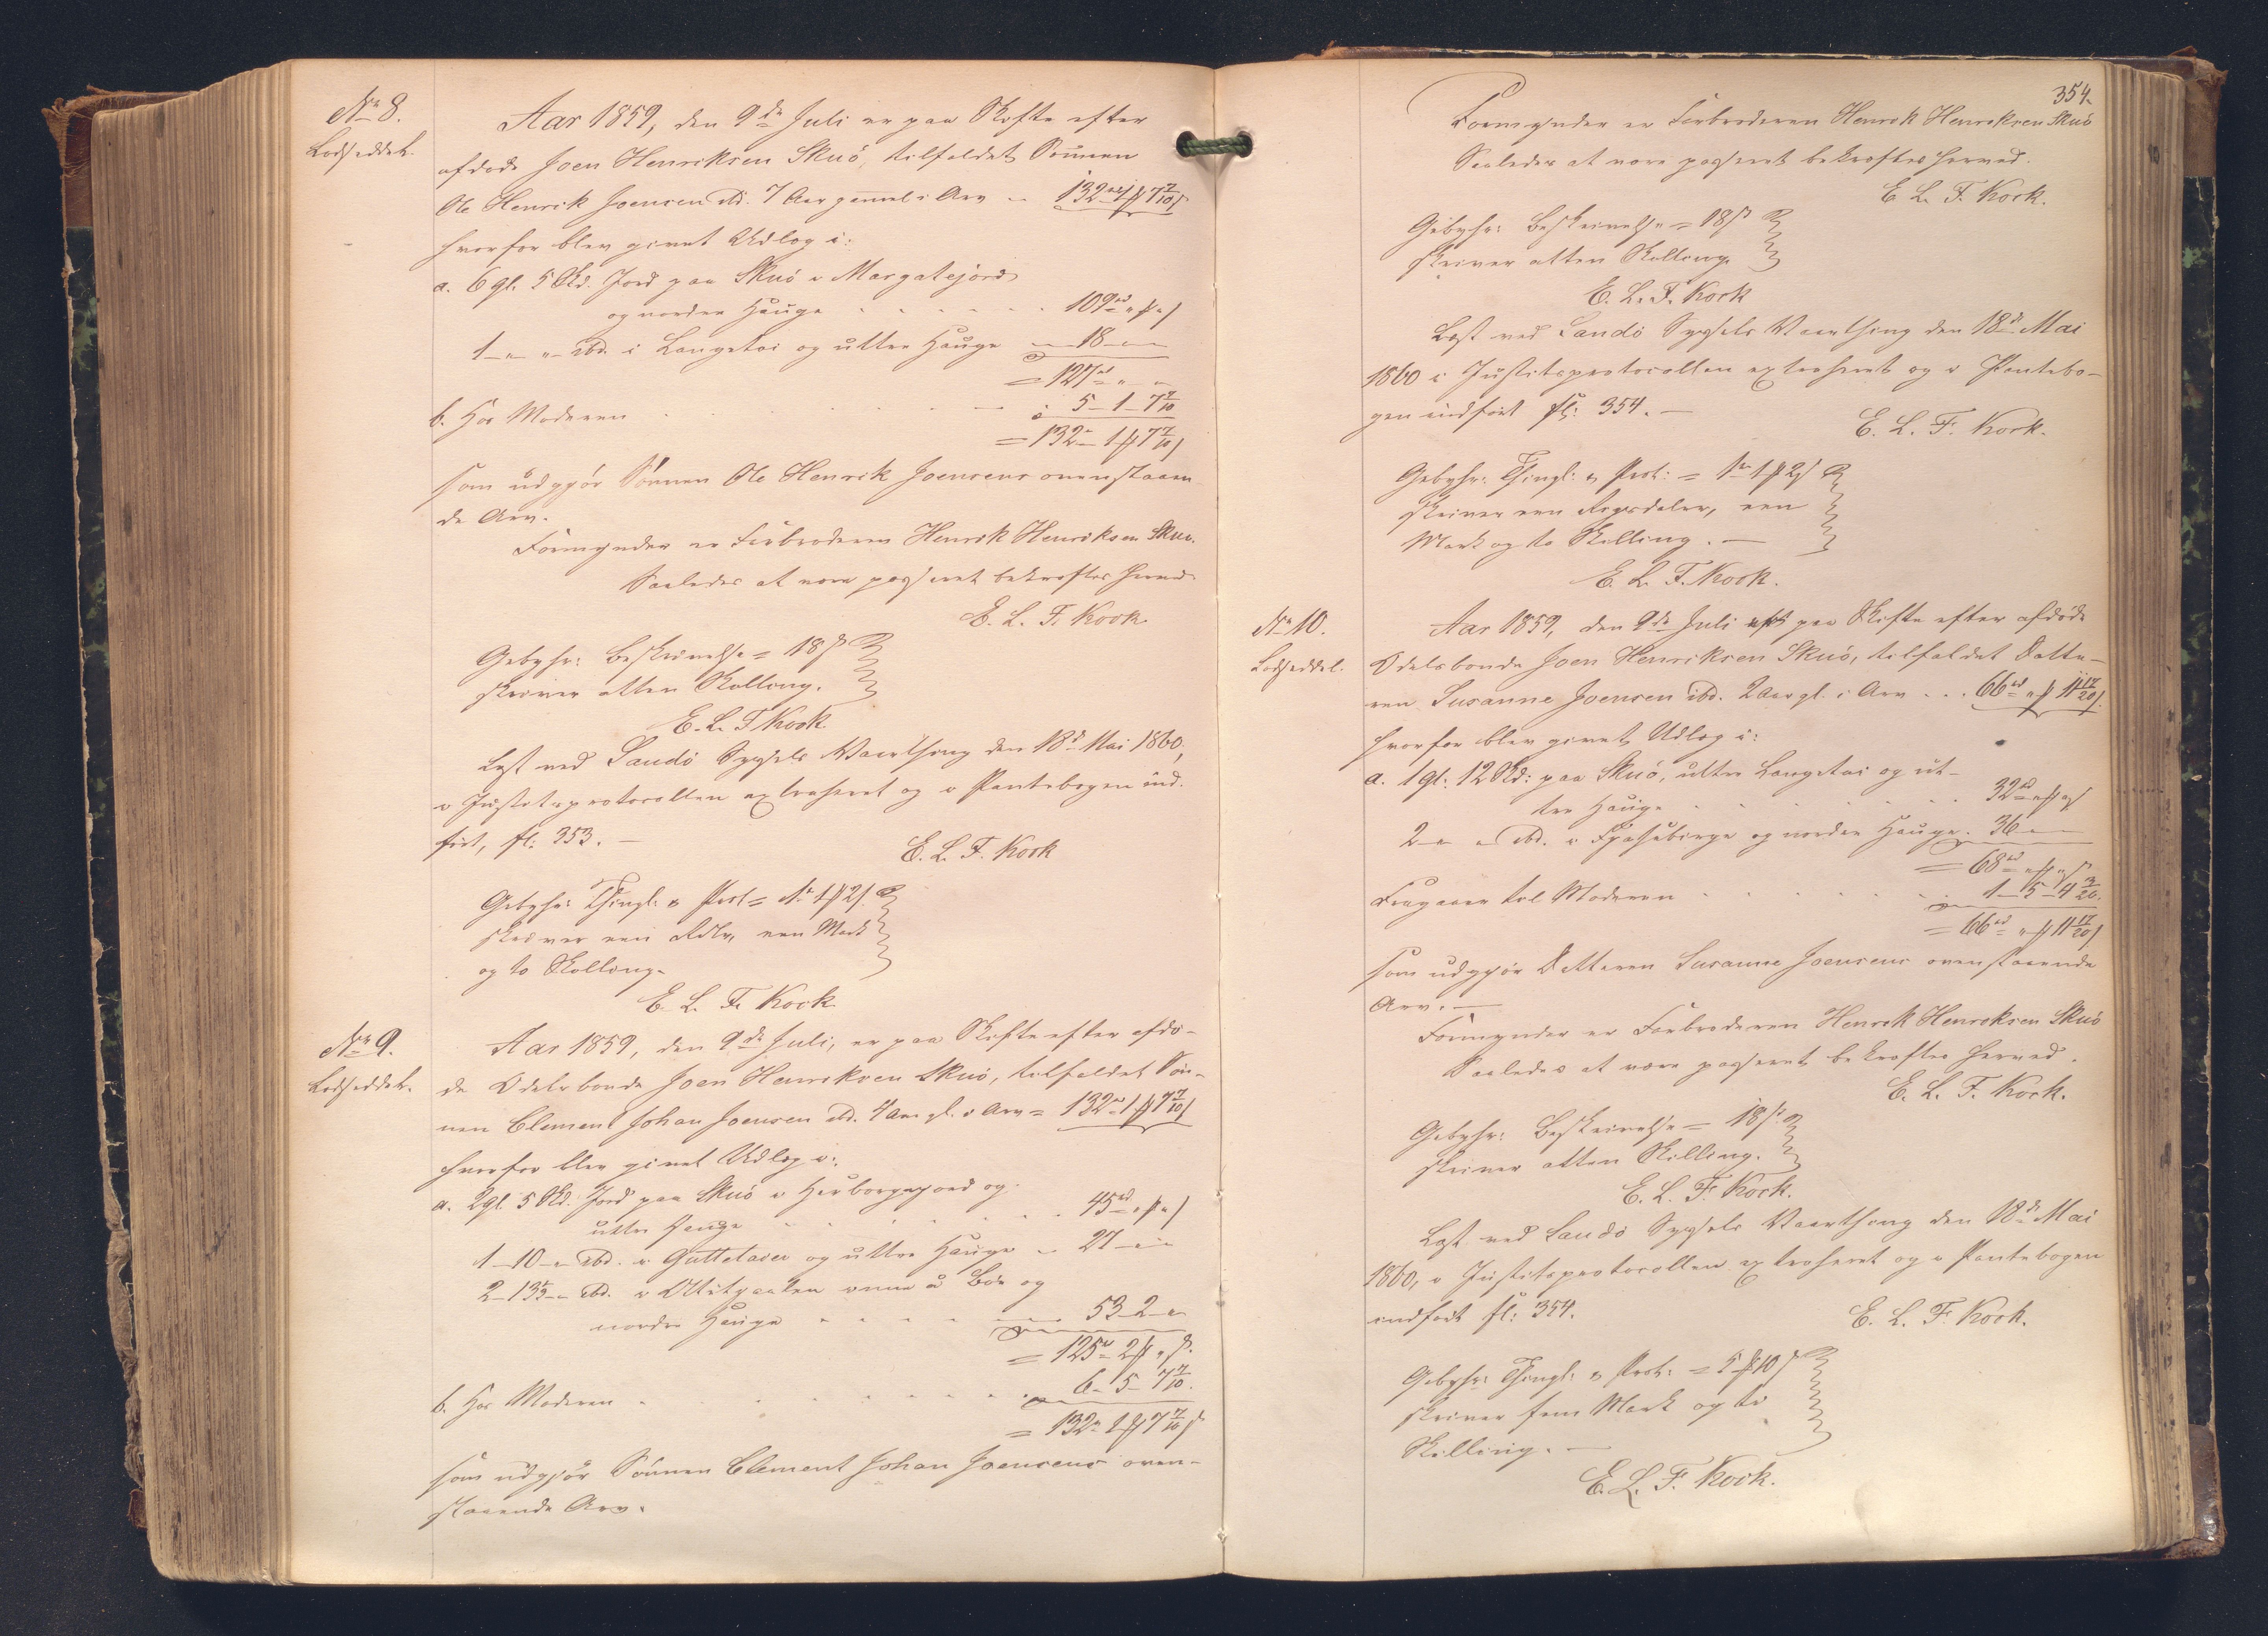 No 8.
Lodseddel.
Aar 1859, den 9de Juli er paa Skifte efter
afdøde Joen Henriksen Skuö, tilfaldet Sönnen
Ole Henrik Joensen ibd. 7 Aar gammel i Arv 132 rd 1 ℳ 7 7/10 ß
hvorfor blev givet Udlæg i:
a. 6 gl. 5 Skd. Jord paa Skuö i Margatejord
og nordre Hauge . . . . . 109 rd " ℳ " ß
1 – " – ibd. i Langetoi og uttre Hauge – 18 – " –
= 127 rd " – "
b. Hos Moderen . . . . 5 – 1 – 7 7/10
= 132 – 1 ℳ 7 7/10 ß
som udgjör Sönnen Ole Henrik Joensens ovenstaaen-
de Arv.
Formynder er Farbroderen Henrik Henriksen Skuö.
Saaledes at være passeret bekræftes herved.
E. L. F. Kock
Gebyhr: Beskrivelse = 18 ß
skriver atten Skilling.
E. L. F. Kock
Læst ved Sandö Syssels Vaarthing den 18de Mai 1860,
i Justitsprotocollen extraheret og i Pantebogen ind-
fört, fl: 353. –
E. L. F. Kock
Gebyhr: Thingl: & Prot = 1 rd 1 ℳ 2 ß
skriver een Rdlr, een Mark
og to Skilling.
E. L. F. Kock
No 9.
Lodseddel.
Aar 1859, den 9de Juli, er paa Skifte efter afdö-
de Odelsbonde Joen Henriksen Skuö, tilfaldet Sön-
nen Clement Johan Joensen ibd. 4 Aar gl. i Arv = 132 rd 1 ℳ 7 7/10 ß
hvorfor blev givet Udlæg i:
a. 2 gl. 5 Skd. Jord paa Skuö i Herborgejord og
uttre Hauge . . . . . 45 rd " ℳ " ß
1 – 10 – " ibd. i Guttelaser og uttre Hauge – 27 – " –
2 – 13 – " ibd. i innu á Bör og
nordre Hauge . . . . 53 – 2 – "
= 125 rd 2 ℳ " ß
b. Hos Moderen . . . . 6 – 5 – 7 7/10
= 132 rd 1 ℳ 7 7/10 ß
som udgjör Sönnen Clement Johan Joensens oven-
staaende Arv.
354.
Formynder er Farbroderen Henrik Henriksen Skuö
Saaledes at være passeret bekræftes herved.
E. L. F. Kock.
Gebyhr: Beskrivelse = 18 ß
skriver atten Skilling.
E. L. F. Kock
Læst ved Sandö Syssels Vaarthing den 18de Mai
1860 i Justitsprotocollen extraheret og i Pantebo-
gen indfört fl: 354. –
E. L. F. Kock.
Gebyhr: Thingl: & Prot: = 1 rd 1 ℳ 2 ß
skriver een Rigsdaler, een
Mark og to Skilling. –
E. L. F. Kock.
No 10.
Lodseddel.
Aar 1859, den 9de Juli paa Skifte efter afdöde
Odelsbonde Joen Henriksen Skuö, tilfaldet Datte-
ren Susanne Joensen ibd. 2 Aar gl. i Arv . . . 66 rd " ℳ 11 17/20 ß
hvorfor blev givet Udlæg i:
a. 1 gl: 12 Skd: paa Skuö, uttre Langetoi og ut-
tre Hauge . . . . . 32 rd " ℳ " ß
2 – " – ibd. i og nordre Hauge. 36 – " –
= 68 rd " ℳ " ß
Fragaaer til Moderen . . . . . 1 – 5 – 4 3/20
= 66 rd " ℳ 11 17/20 ß
som udgjör Datteren Susanne Joensens ovenstaaende
Arv. –
Formynder er Farbroderen Henrik Henriksen Skuö
Saaledes at være passeret bekræftes herved.
E. L. F. Kock.
Gebyhr: Beskrivelse = 18 ß
skriver atten Skilling.
E. L. F. Kock.
Læst ved Sandö Syssels Vaarthing den 18de Mai
1860, i Justitsprotocollen extraheret og i Pantebogen
indfört fl: 354.
E. L. F. Kock.
Gebyhr: Thingl: & Prot: = 5 ℳ 10 ß
skriver fem Mark og ti
Skilling. –
E. L. F. Kock.